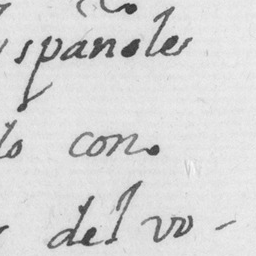 spañoles
do con
del vo-